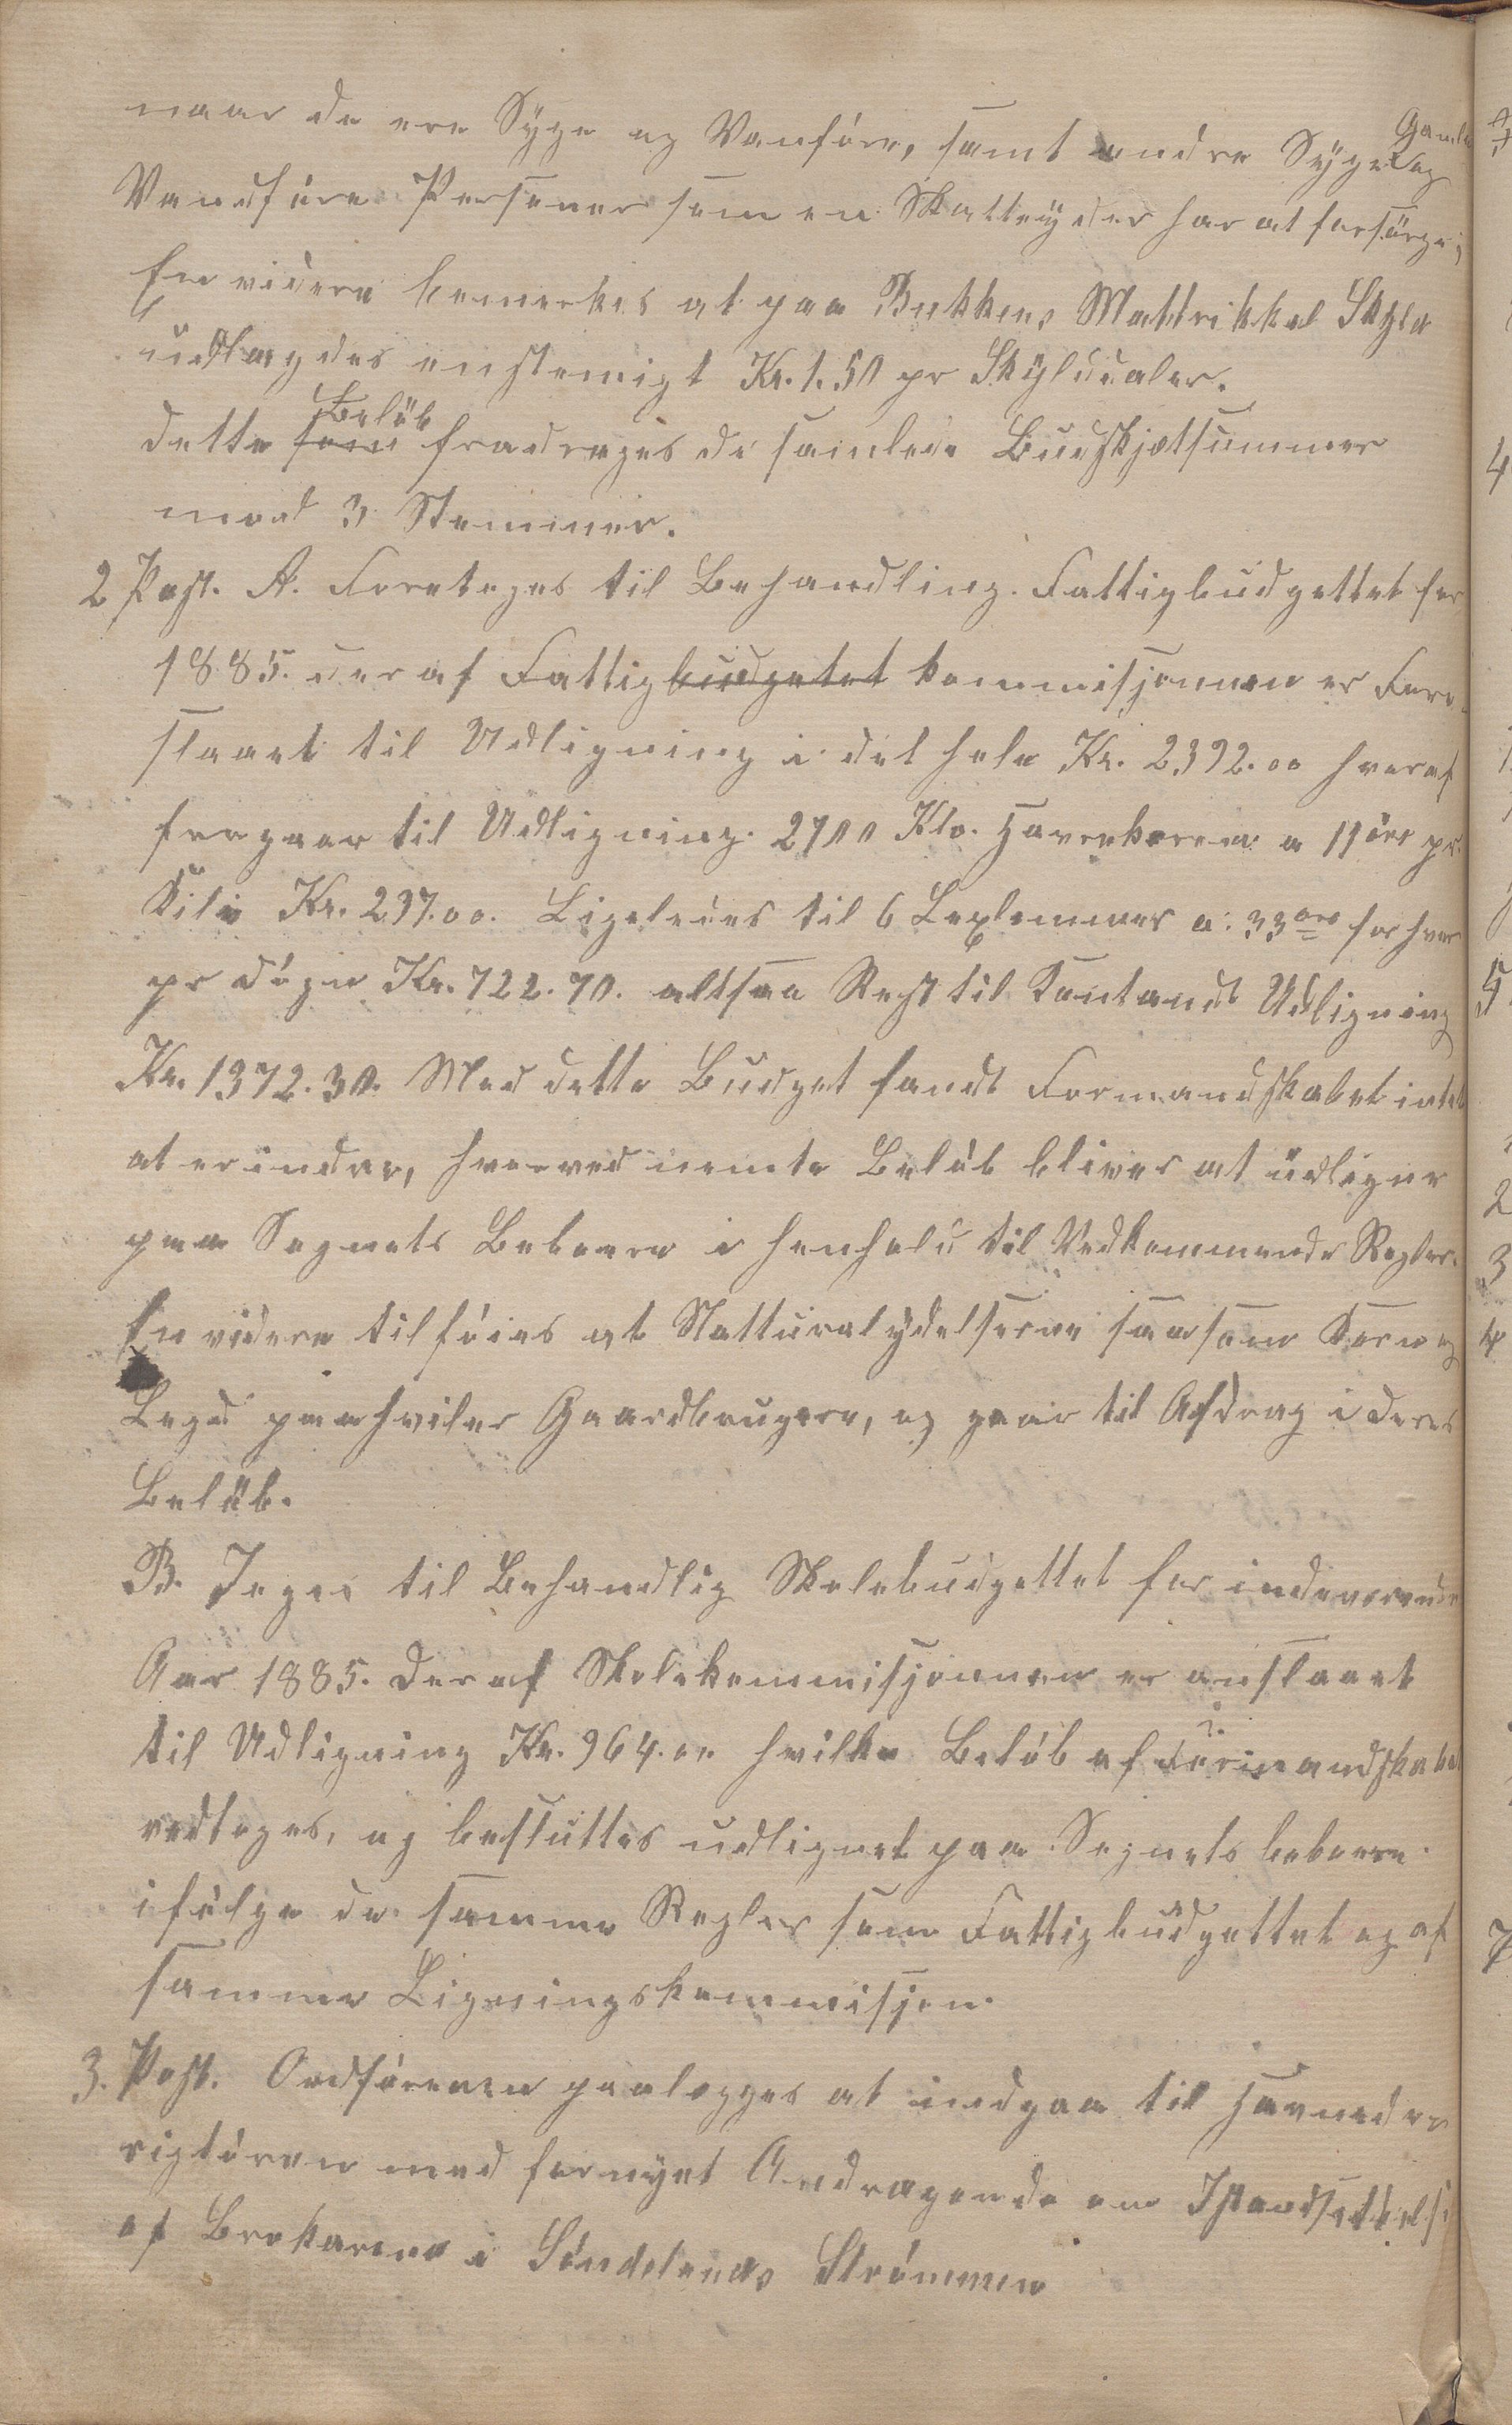 naar de ere Syge og Vanföre, samt andre Syge Gamle og
Vandföre Personer som en Skatteyder har at forsörge;
En videre bemerkes at paa Brukkens Mattrikkel Skyld
udlagdes enstemigt Kr. 1.50 pr Skylddaler.
dette som Belöb fradrages de samlede Budskjetsummer
mod 3 Stemmer.
2 Post. A. Foretoges til Behandling. Fattigbudgettet for
1885. der af Fattigbudgetet kommisjonnen er Fore-
slaaet til Udligning i det hele Kr. 2392.00 hveraf
fragaar til Udligning. 2700 Klo. Havrekorn a 11 öre pr.
Kilo Kr. 297.00. Ligeledes til 6 Leglemmer a: 33 öre for hver
pr dögn Kr. 722.70. altsaa Rest til Kontandt Udligning
Kr. 1372.30. Med dette Budget fandt Formandskabet intet
at erindre, hvorved nemte Belöb bliver at udligne
paa Sognets Beboere i henhold til Vedkommende Regler.
En videre tilföies at Natturalydelserne saasom Korn og
Legd paahviler Gaardbrugere, og gaar til Afdrag i deres
Belöb.
B. Toges til Behandlig Skolebudgettet for indeverende
Aar 1885. der af Skolekommisjonnen er anslaaet
til Udligning Kr. 964.00 hvilke Belöb af Formandskabet
vedtoges, og besluttes udlignet paa Sognets beboere
ifölge de samme Regler som Fattigbudgettet og af
samme Ligningskommisjon.
3. Post. Ordföreren paalegges at indgaa til Havnedi
rigtören med fornyet Andragende om Istandsettelse
af Brokarene i Söndeleds Strömmen